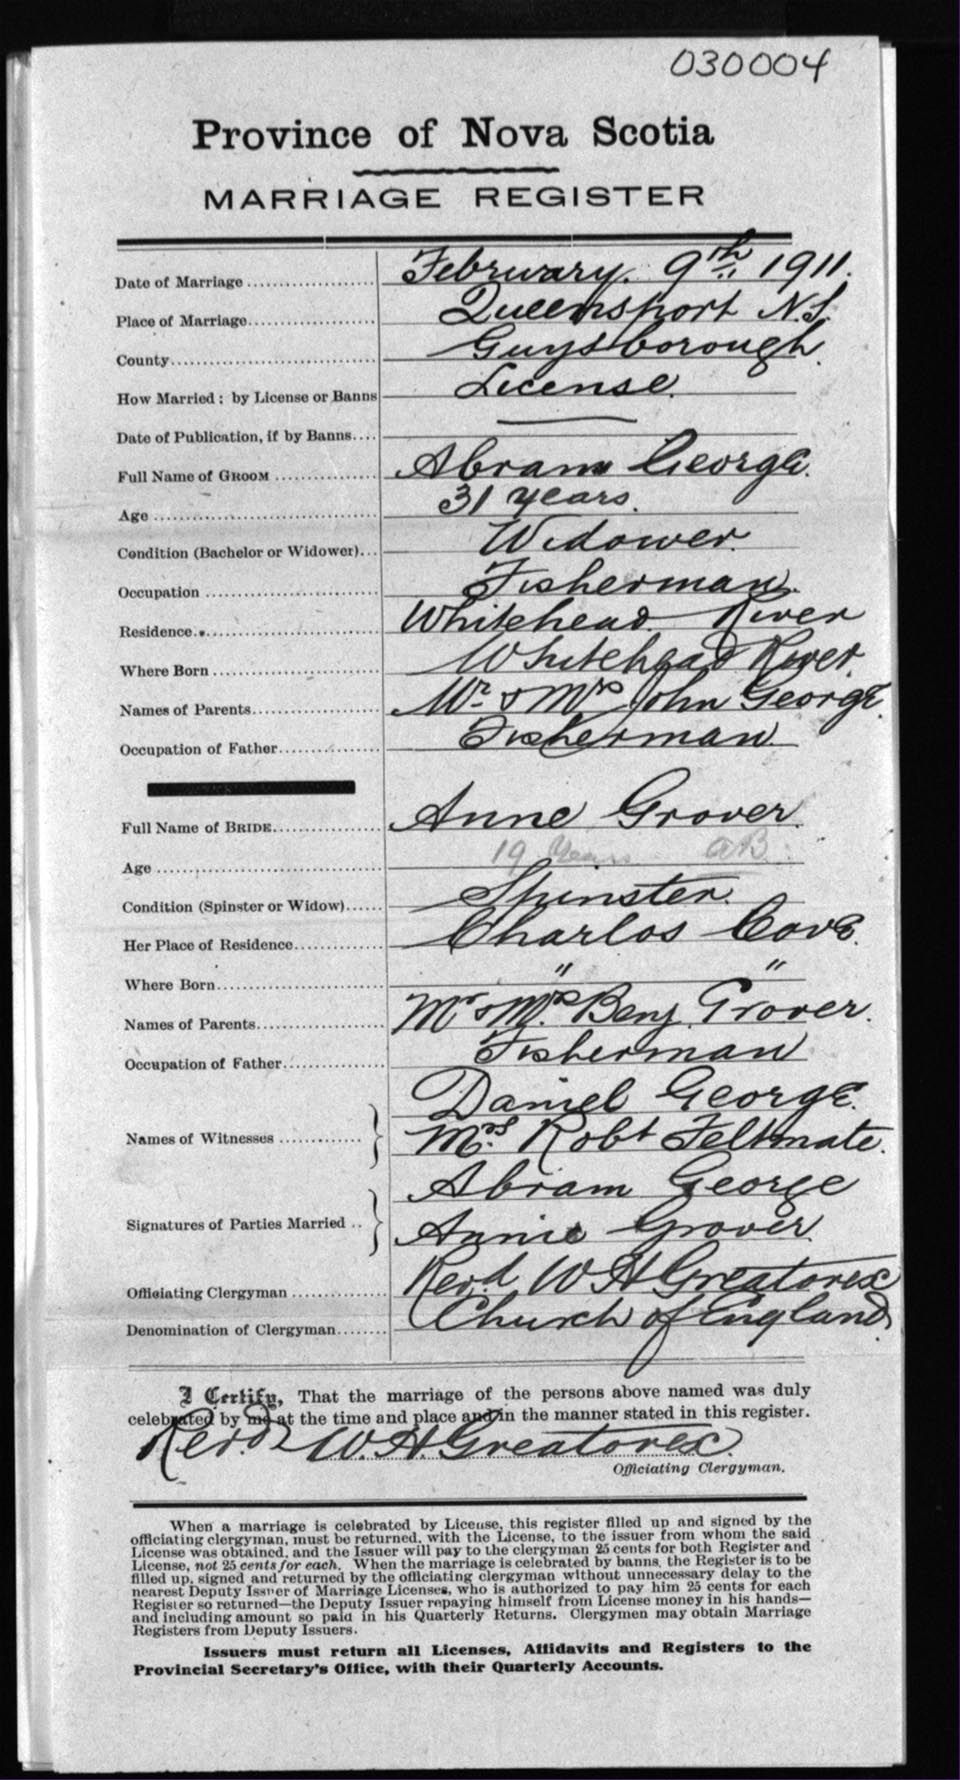 030004
Province of Nova Scotia
MARRIAGE REGISTER
Date of Marriage .................... February. 9th 1911.
Place of Marriage.................... Queensport N.S.
County.................... Guysborough.
How Married; by License or Banns License.
Date of Publication, if by Banns.... ——
Full Name of GROOM .................... Abram George.
Age .................... 31 years.
Condition (Bachelor or Widower)... Widower.
Occupation .................... Fisherman.
Residence.................... Whitehead River
Where Born .................... Whitehead River.
Names of Parents.................... Mr & Mrs John George.
Occupation of Father.................... Fisherman.
Full Name of BRIDE.................... Anne Grover.
Age .................... 19 Years aB.
Condition (Spinster or Widow)...... Spinster.
Her Place of Residence.................... Charlos Cove.
Where Born.................... " "
Names of Parents.................... Mr & Mrs. Benj. Grover.
Occupation of Father.................... Fisherman
Daniel George.
Names of Witnesses .................... } Mrs. Robt Feltmate.
Abram George
Signatures of Parties Married .. } Annie Grover.
Officiating Clergyman .................... Revd W H Greatorex
Denomination of Clergyman........ Church of England
I Certify, That the marriage of the persons above named was duly
celebrated by me at the time and place and in the manner stated in this register.
Revd W. H. Greatorex.
Officiating Clergyman.
When a marriage is celebrated by License, this register filled up and signed by the
officiating clergyman, must be returned, with the License, to the issuer from whom the said
License was obtained, and the Issuer will pay to the clergyman 25 cents for both Register and
License, not 25 cents for each. When the marriage is celebrated by banns, the Register is to be
filled up, signed and returned by the officiating clergyman without unnecessary delay to the
nearest Deputy Issuer of Marriage Licenses, who is authorized to pay him 25 cents for each
Register so returned—the Deputy Issuer repaying himself from License money in his hands—
and including amount so paid in his Quarterly Returns. Clergymen may obtain Marriage
Registers from Deputy Issuers.
Issuers must return all Licenses, Affidavits and Registers to the
Provincial Secretary's Office, with their Quarterly Accounts.